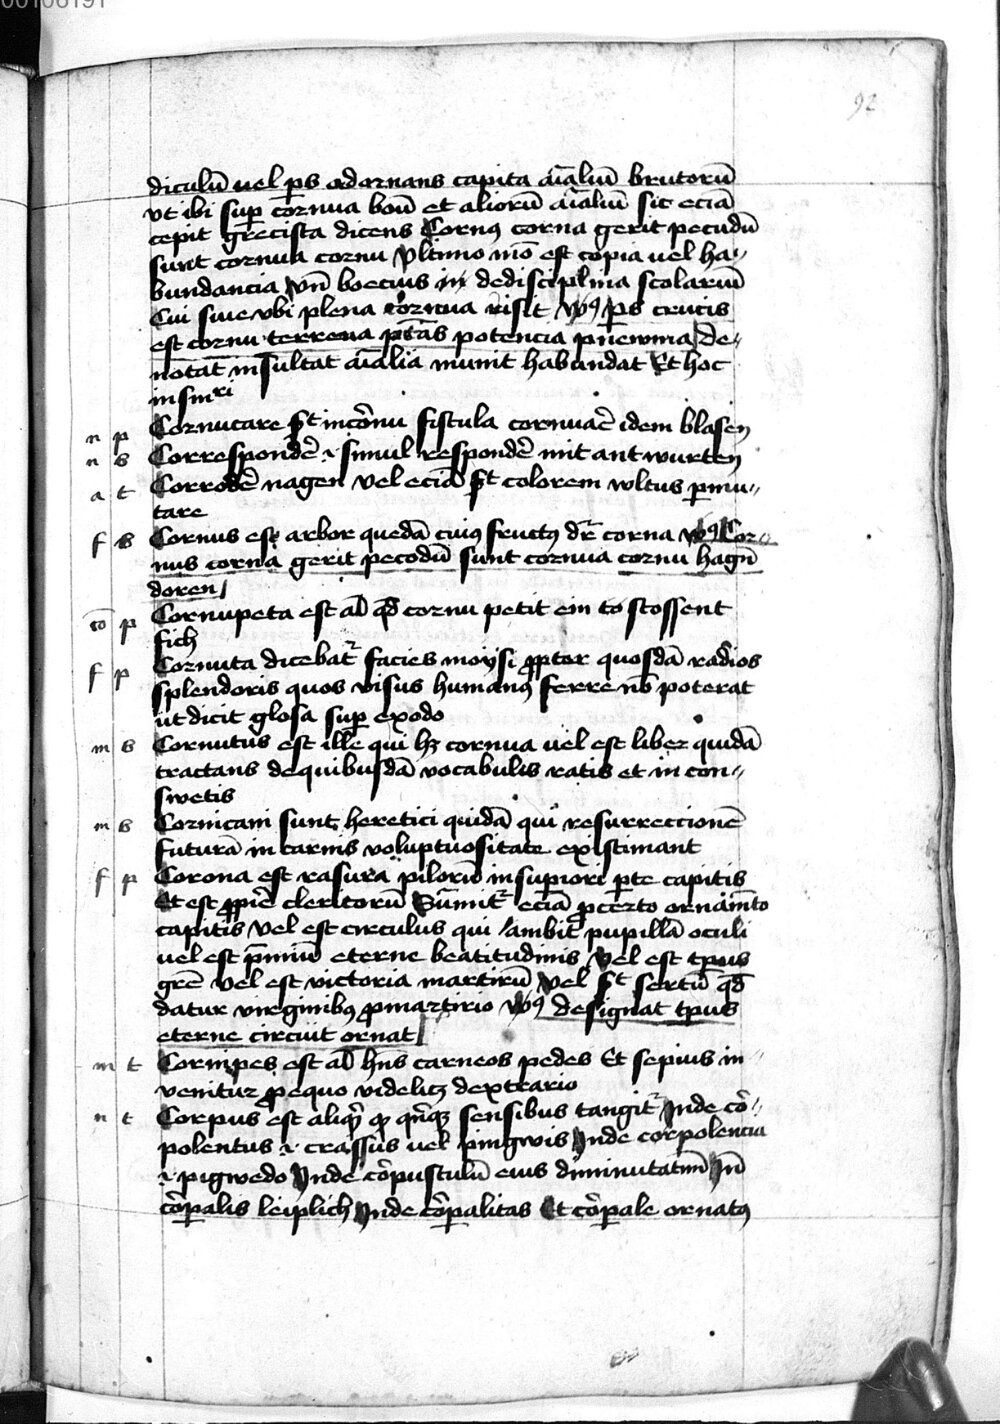 00106191
92
diculū uel ps adornans capita aīaliū brutorū
vt ibi sup cornua boū et aliorū aīaliū sic eciā
cepit grecista dicens Cornꝰ corna gerit pecudū
sunt cornua cornu Vltimo mō est copia uel ha〃
bundancia vn̄ boecius in de disciplina scolariū
Cui siue vbi plena cornua risit vꝰ ps crucis
est cornu terrena ptās potencia pneuma de〃
notat insultat aīalia munit habundat Et hoc
in sinri
n p Cornucare st in cōrnu fistula cornuaē idem blasen
n s Correspondē .i. simul respondē mit antwurten
a t Corrodē nagen vel eciā st colorem wltus pmu〃
tare
f s Cornus est arbor quedā cuiꝰ fructꝰ dr̄ corna vꝰ Cor〃
nus corna gerit pecodū sunt cornua cornu hagn̄
doren
cō p Cornupeta est aīl qd̄ cornu petit ein to stossent
fich
f p Cornuta dicebat᷑ facies moysi ꝓpter quosdā radios
splendoris quos visus humanꝰ ferre nō poterat
ut dicit glosa sup exodo
m s Cornutus est ille qui hꝫ cornua uel est liber quidā
tractans de quibusdā vocabulis ratis et in con〃
swetis
m s Cornicani sunt heretici quidā qui resurreccionē
futurā in carnis voluptuositate existimant
f p Corona est rasura pilorū in supiori pte capitis
Et est ꝓpiē clericorū Sūmit᷑ eciā ꝓ certo ornām̄to
capitis vel est circulus qui ambit pupillā oculi
uel est p̄miū eterne beatitudinis vel est tpus
grē vel est victoria martirū vel st sertū qd̄
datur virginibꝰ ꝓ martirio vꝰ designat tpus
eterne circuit ornat
m t Cornipes est aīl hn̄s carneos pedes Et sepius in〃
venitur ꝓ equo videlicꝫ dextrario
n t Corpus est aliqͩ qͩ qn̄qꝫ sensibus tangit᷑ Inde cō〃
polentus .i. crassus uel pingwis Inde corpolencia
.i. pigwedo Inde cōpusculū eius diminutatiuū In̄
cōpalis leiplich Inde cōpalitas Et cōpale ornatꝰ